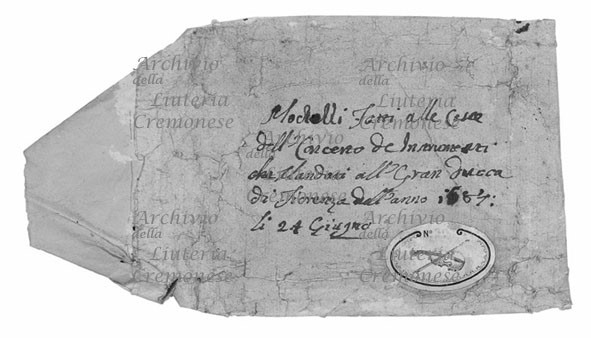 Archivio
della
Liuteria
Cremonese
Archivio
della
Liuteria
Cremonese
Modelli Fatti alle Casse
dell Conceno de
che Mandati all Gran Ducca
di Fiorenza dell anno 1684:
li 24 Giugno
Archivio
della
Liuteria
Cremonese
Archivio
della
Liuteria
Cremonese
Archivio
della
Liuteria
Cremonese
N°